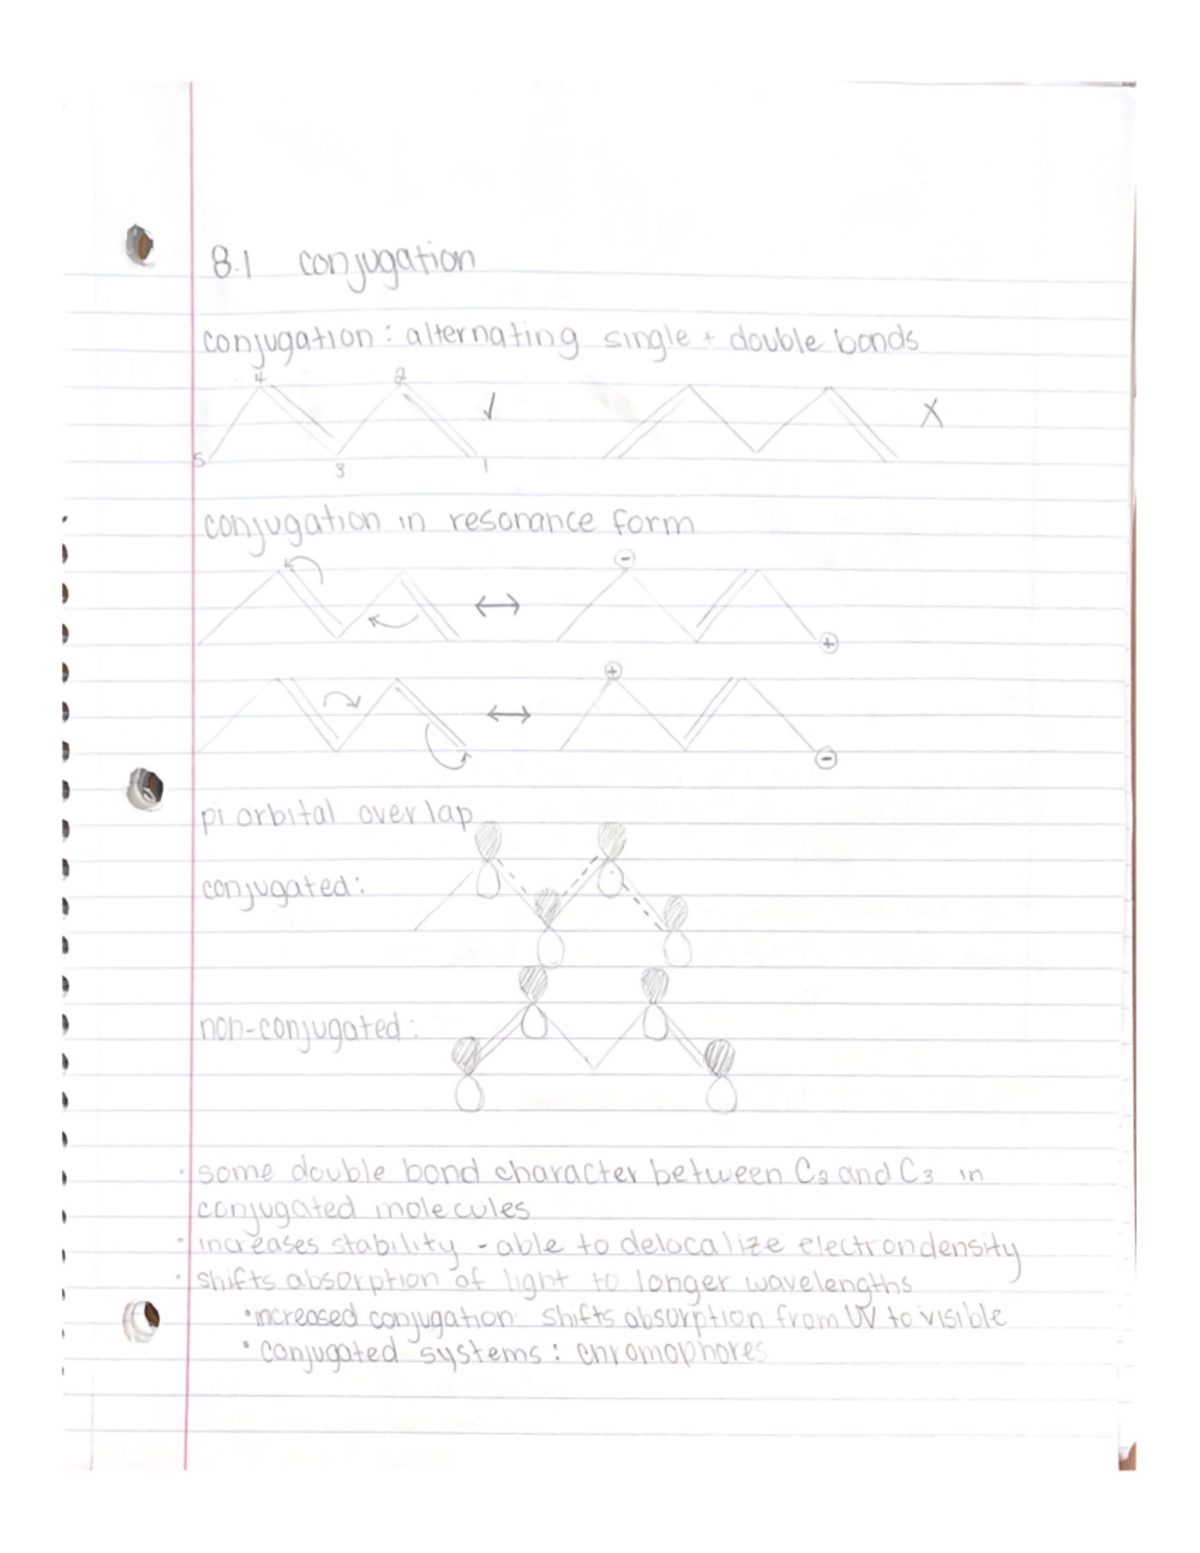 8.1 conjugation
conjugation: alternating single + double bonds
4 2 ✓ X
5 3 1
conjugation in resonance form
⊖
↔
⊕
⊕
↔
⊖
pi orbital overlap
conjugated:
non-conjugated:
• some double bond character between C2 and C3 in
conjugated molecules
• increases stability - able to delocalize electron density
• shifts absorption of light to longer wavelengths
• increased conjugation: shifts absorption from UV to visible
• conjugated systems: chromophores